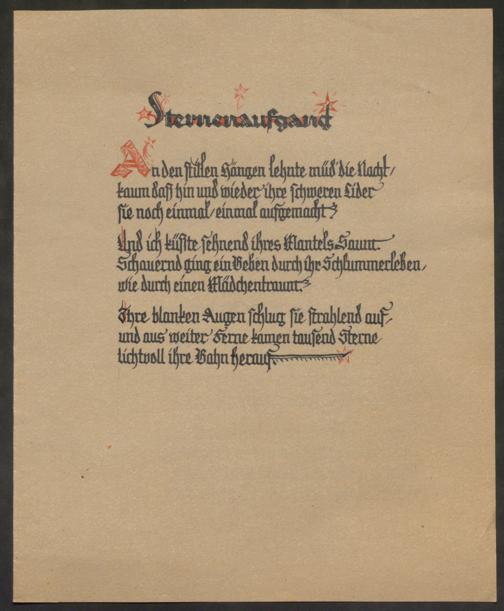 Sternenaufgang
An den stillen Hängen lehnte müd' die Nacht/
kaum daß hin und wieder ihre schweren Lider
sie noch einmal/einmal aufgemacht
Und ich küßte sehnend ihres Mantels Saum.
Schauernd ging ein Beben durch ihr Schlummerleben/
wie durch einen Mädchentraum.
Ihre blanken Augen schlug sie strahlend auf/
und aus weiter Ferne kamen tausend Sterne
lichtvoll ihre Bahn herauf